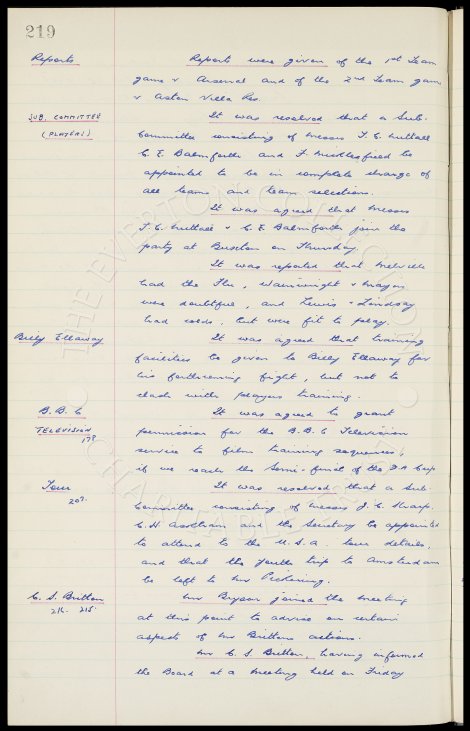 219
Reports
Reports were given of the 1st Team
game v Arsenal and of the 2nd Team game
v Aston Villa Res.
SUB. COMMITTEE
(PLAYERS)
It was resolved that a Sub-
Committee consisting of Messrs T. C. Nuttall
C. E. Balmforth and F. Micklesfield be
appointed to be in complete charge of
all teams and team selections.
It was agreed that Messrs
T. C. Nuttall & C. E. Balmforth join the
party at Buxton on Thursday.
It was reported that Melville
had the Flu, Wainwright & Mayers
were doubtful, and Lewis & Lindsay
had colds, but were fit to play.
Billy Ellaway
It was agreed that training
facilities be given to Billy Ellaway for
his forthcoming fight, but not to
clash with players training.
B. B. C
TELEVISION
178.
It was agreed to grant
permission for the B.B.C Television
service to film training sequences,
if we reach the Semi-final of the F.A Cup.
Tour
207.
It was resolved that a Sub-
Committee consisting of Messrs J. C. Sharp.
C. H. Askham and the Secretary be appointed
to attend to the U.S.A. tour details,
and that the youths trip to Amsterdam
be left to Mr Pickering.
C. S. Britton
214. 215.
Mr Bryson joined the meeting
at this point to advise on certain
aspects of Mr Brittons actions.
Mr C S. Britton, having informed
the Board at a meeting held on Friday
THE EVERTON COLLECTION
CHARITABLE TRUST